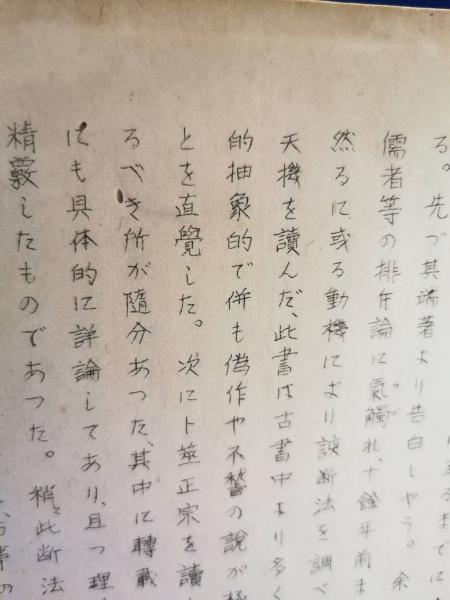 る。先づ其端著より告白しやう。余
儒者等の排斥論に氣觸れ、十餘年前ま
然るに或る動機により誤断法を調べ
天機を讀んだ、此書は古書中より多く
的抽象的で併も偽作や不警の說が極
とを直覺した。次に卜筮正宗を讀
るべき所が隨分あつた、其中に轉載
にも具体的に詳論してあり、且つ理
精覈したものであつた。稍々此断法